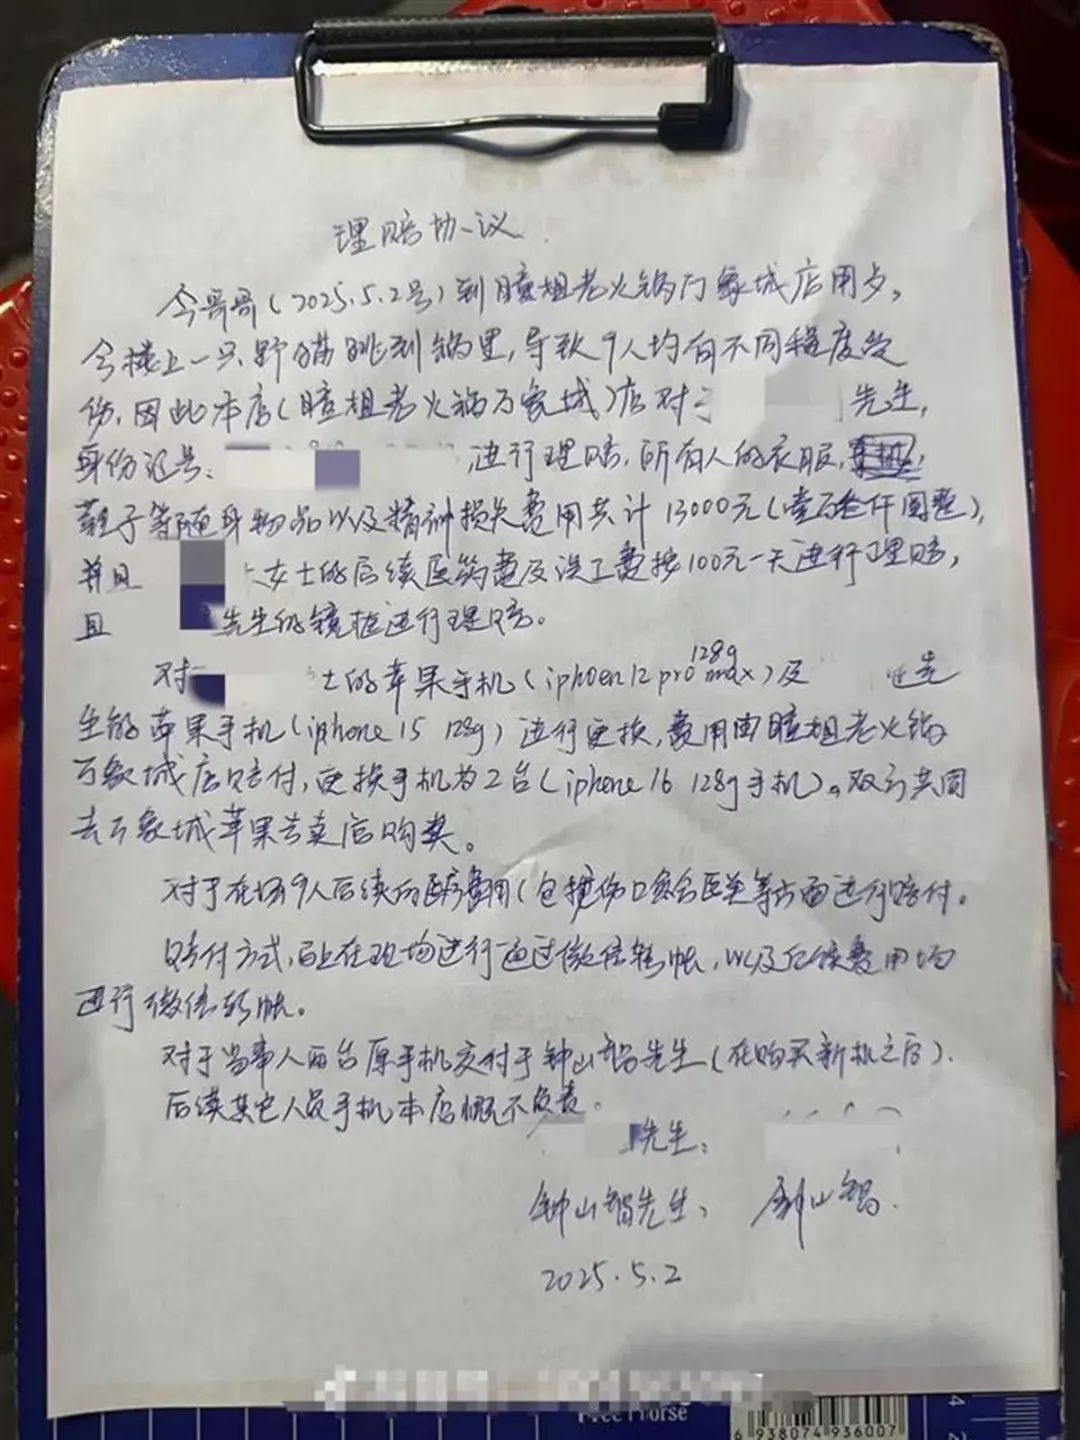 理赔协议
今哥哥(2025.5.2号)到瞳姐老火锅万象城店用歺。
今楼上一只野猫跳到锅里,导致9人均有不同程度受
伤,因此本店(瞳姐老火锅万象城)店对于 先生,
身份证号: 进行理赔,所有人的衣服,
鞋子等随身物品以及精神损失费用共计13000元(壹万叁仟圆整),
并且 女士的后续医药费及误工费按100元一天进行理赔,
且 先生的镜框进行理赔。
对 士的苹果手机(iphoen 12 pro max 128g)及 先
生的苹果手机(iphone 15 128g)进行更换,费用由瞳姐老火锅
万象城店赔付,更换手机为2台(iphone 16 128g手机)。双方共同
去万象城苹果专卖店购买。
对于在场9人后续的医疗费用(包换伤口愈合医美等方面进行赔付。
赔付方式,马上在现场进行通过微信转帐,以及后续费用均
进行微信转帐。
对于当事人两台原手机交付于钟山锅先生(在购买新机之后).
后续其它人员手机本店概不负责。
先生:
钟山锅先生: 钟山锅.
2025.5.2
Free Horse
6 938074 936007